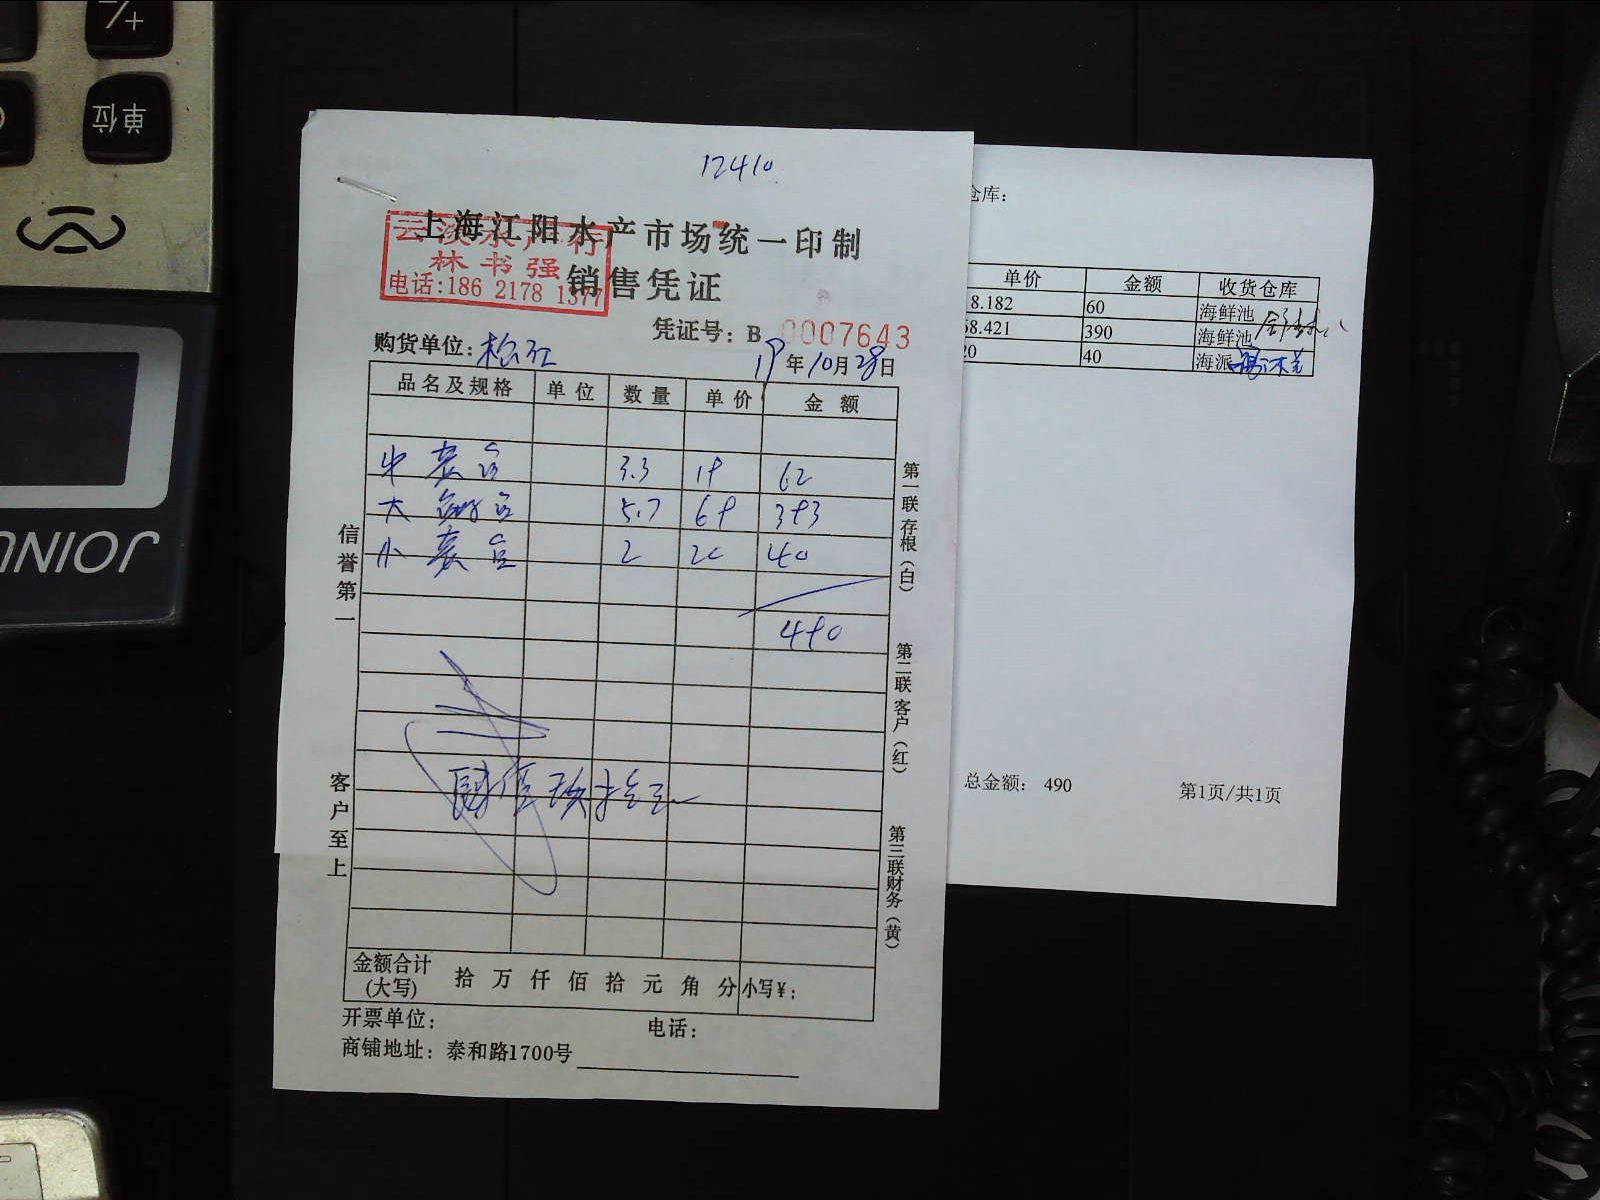 +/-
单位
JOINU
12410
上海江阳水产市场统一印制
林书强
电话:186 2178 1377
销售凭证
凭证号: B 0007643
购货单位: 松江
19年10月28日
品名及规格 单位 数量 单价 金额
中 3.3 19 62
大 5.7 69 393
小 2 20 40
490
肆佰玖拾元
信誉第一
客户至上
第一联存根(白)
第二联客户(红)
第三联财务(黄)
金额合计(大写) 拾 万 仟 佰 拾 元 角 分 小写¥:
开票单位: 电话:
商铺地址: 泰和路1700号
仓库:
单价 金额 收货仓库
8.182 60 海鲜池
68.421 390 海鲜池
20 40 海派
总金额: 490 第1页/共1页